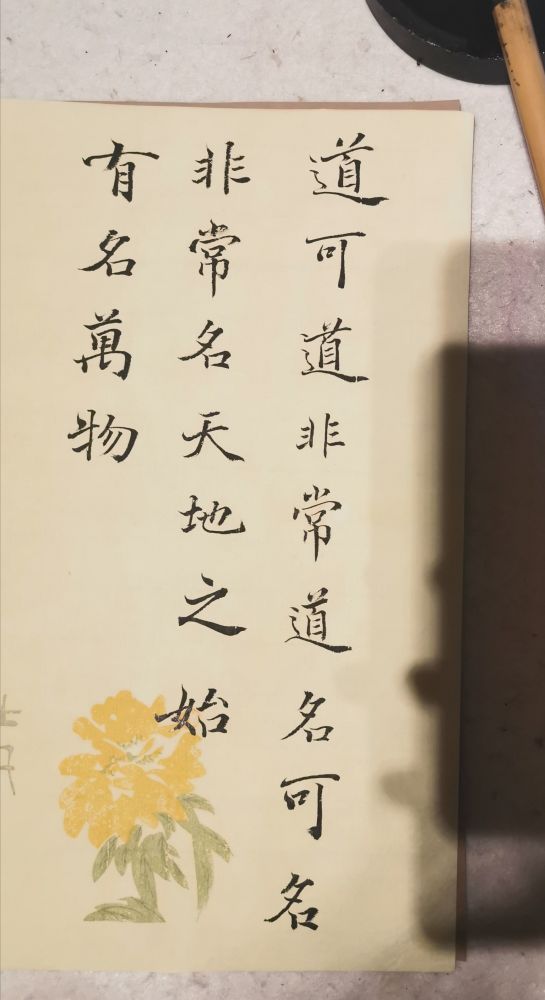 道可道非常道名可名
非常名天地之始
有名萬物